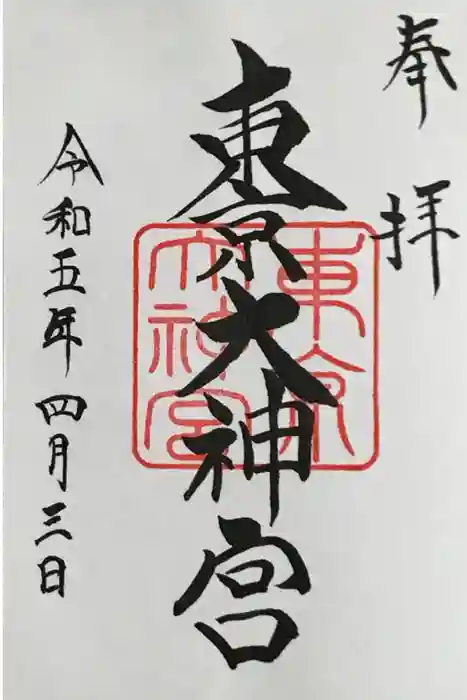 奉拝
東京大神宮
東京
大神宮
令和五年四月三日